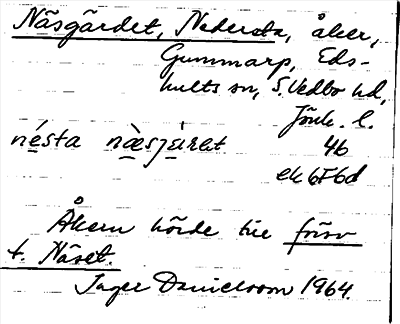 Näsgärdet, Nedersta, åker,
Gummarp, Eds-
hults sn, S. Vedbo hd,
Jönk. l.
nésta næ̀sjáret 46
ek 6F6d
Åkern hörde till förr
t. Näset.
Inger Danielsson 1964.